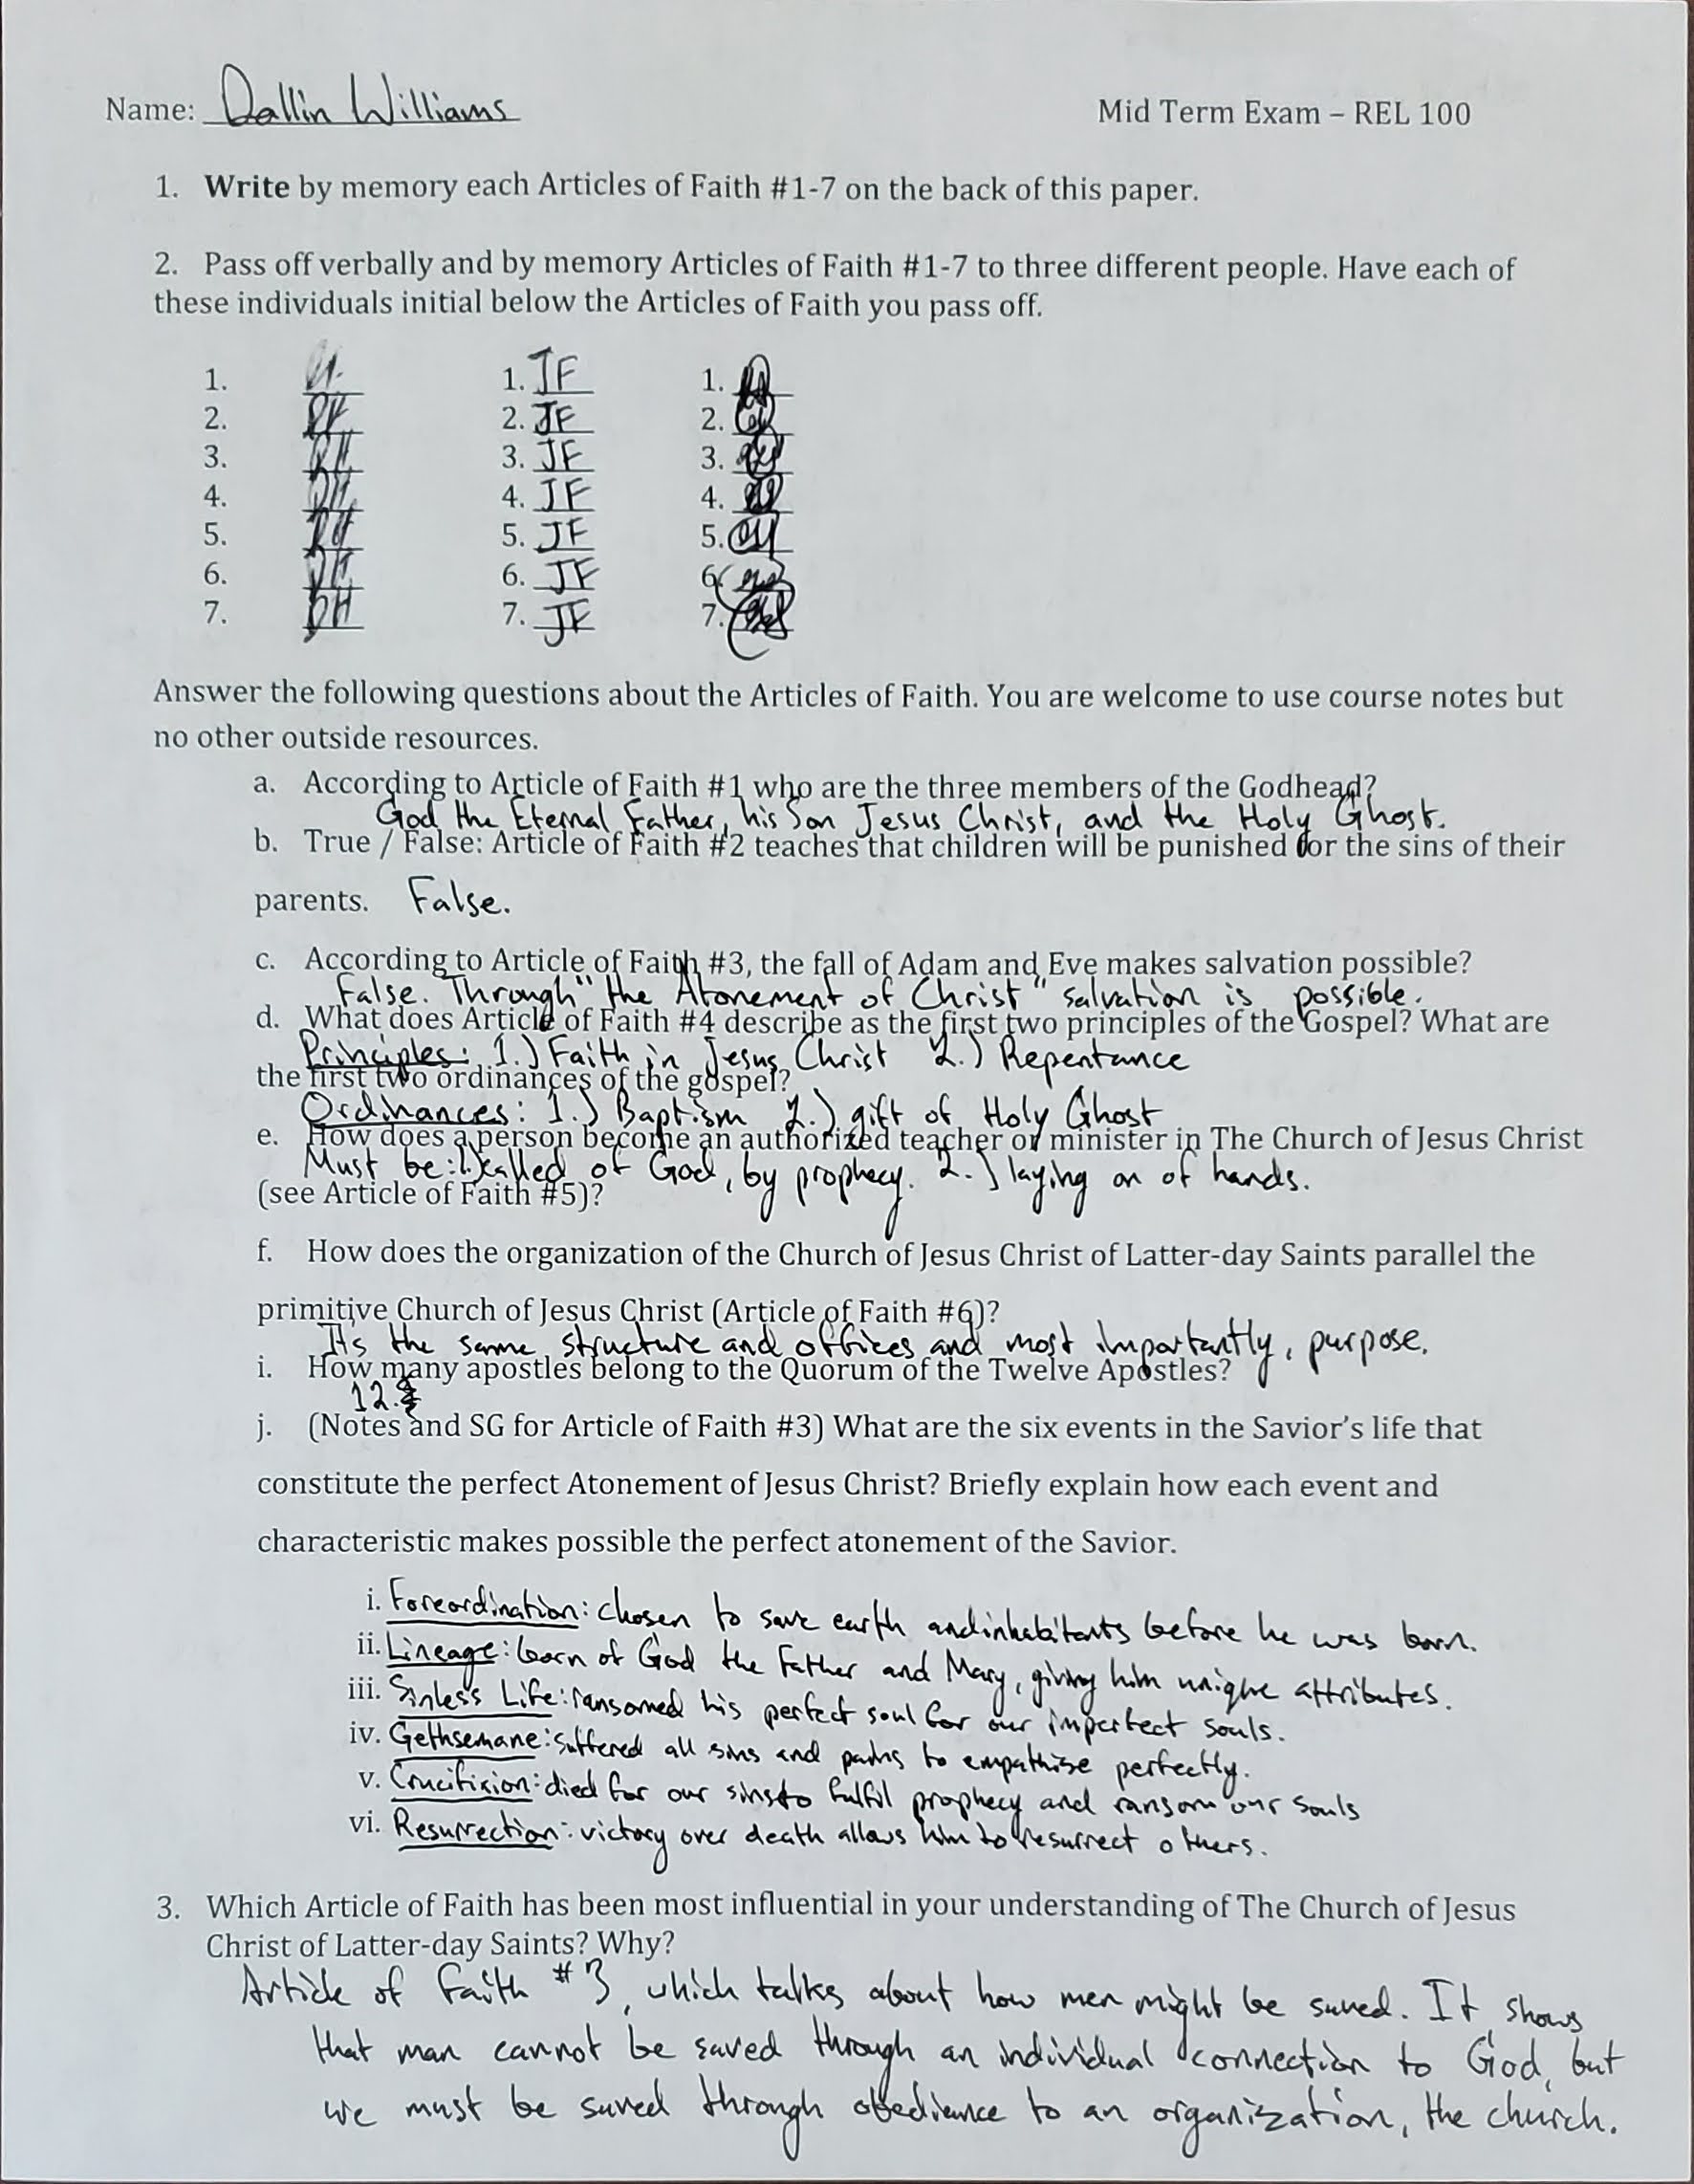 Name: Dallin Williams Mid Term Exam – REL 100
1. Write by memory each Articles of Faith #1-7 on the back of this paper.
2. Pass off verbally and by memory Articles of Faith #1-7 to three different people. Have each of
these individuals initial below the Articles of Faith you pass off.
1. 1. JF 1.
2. 2. JF 2.
3. 3. JF 3.
4. 4. JF 4.
5. 5. JF 5.
6. 6. JF 6.
7. DH 7. JF 7.
Answer the following questions about the Articles of Faith. You are welcome to use course notes but
no other outside resources.
a. According to Article of Faith #1 who are the three members of the Godhead?
God the Eternal Father, his Son Jesus Christ, and the Holy Ghost.
b. True / False: Article of Faith #2 teaches that children will be punished for the sins of their
parents. False.
c. According to Article of Faith #3, the fall of Adam and Eve makes salvation possible?
False. Through "the Atonement of Christ" salvation is possible.
d. What does Article of Faith #4 describe as the first two principles of the Gospel? What are
Principles: 1.) Faith in Jesus Christ 2.) Repentance
the first two ordinances of the gospel?
Ordinances: 1.) Baptism 2.) gift of Holy Ghost
e. How does a person become an authorized teacher or minister in The Church of Jesus Christ
Must be: 1.) called of God, by prophecy. 2.) laying on of hands.
(see Article of Faith #5)?
f. How does the organization of the Church of Jesus Christ of Latter-day Saints parallel the
primitive Church of Jesus Christ (Article of Faith #6)?
Its the same structure and offices and most importantly, purpose.
i. How many apostles belong to the Quorum of the Twelve Apostles?
12.
j. (Notes and SG for Article of Faith #3) What are the six events in the Savior's life that
constitute the perfect Atonement of Jesus Christ? Briefly explain how each event and
characteristic makes possible the perfect atonement of the Savior.
i. Foreordination: chosen to save earth and inhabitants before he was born.
ii. Lineage: born of God the Father and Mary, giving him unique attributes.
iii. Sinless Life: ransomed his perfect soul for our imperfect souls.
iv. Gethsemane: suffered all sins and pains to empathise perfectly.
v. Crucifixion: died for our sins to fulfil prophecy and ransom our souls
vi. Resurrection: victory over death allows him to resurrect others.
3. Which Article of Faith has been most influential in your understanding of The Church of Jesus
Christ of Latter-day Saints? Why?
Article of Faith #3, which talks about how men might be saved. It shows
that man cannot be saved through an individual connection to God, but
we must be saved through obedience to an organization, the church.